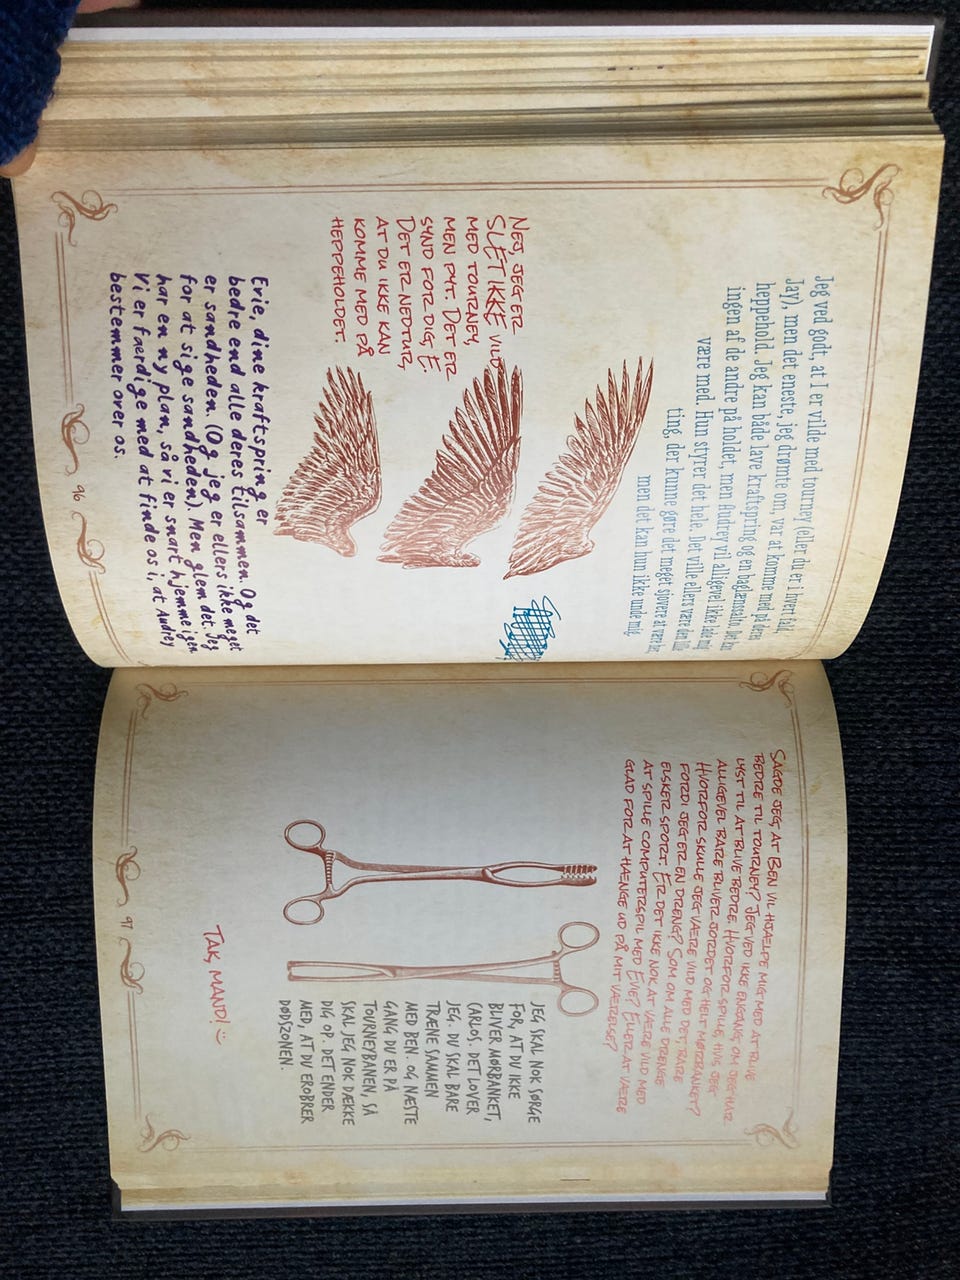 Jeg ved godt, at I er vilde med tourney (eller du er i hvert fald,
Jay), men det eneste, jeg drømte om, var at komme med på deres
heppehold. Jeg kan både lave kraftspring og en baglænssalto. Det kan
ingen af de andre på holdet, men Audrey vil alligevel ikke lade mig
være med. Hun styrer det hele. Det ville ellers være den lille
ting, der kunne gøre det meget sjovere at være her,
men det kan hun ikke unde mig.
NEJ, JEG ER
SLET IKKE VILD
MED TOURNEY,
MEN PYT. DET ER
SYND FOR DIG, E.
DET ER NEDTUR,
AT DU IKKE KAN
KOMME MED PÅ
HEPPEHOLDET.
Evie, dine kraftspring er
bedre end alle deres tilsammen. Og det
er sandheden. (Og jeg er ellers ikke meget
for at sige sandheden). Men glem det. Jeg
har en ny plan, så vi er snart hjemme igen.
Vi er færdige med at finde os i, at Audrey
bestemmer over os.
96
SAGDE JEG, AT BEN VIL HJÆLPE MIG MED AT BLIVE
BEDRE TIL TOURNEY? JEG VED IKKE ENGANG, OM JEG HAR
LYST TIL AT BLIVE BEDRE. HVORFOR SPILLE, HVIS JEG
ALLIGEVEL BARE BLIVER JORDET OG HELT MØRBANKET?
HVORFOR SKULLE JEG VÆRE VILD MED DET, BARE
FORDI JEG ER EN DRENG? SOM OM ALLE DRENGE
ELSKER SPORT. ER DET IKKE NOK AT VÆRE VILD MED
AT SPILLE COMPUTERSPIL MED EVIE? ELLER AT VÆRE
GLAD FOR AT HÆNGE UD PÅ MIT VÆRELSE?
JEG SKAL NOK SØRGE
FOR, AT DU IKKE
BLIVER MØRBANKET,
CARLOS. DET LOVER
JEG. DU SKAL BARE
TRÆNE SAMMEN
MED BEN. OG NÆSTE
GANG DU ER PÅ
TOURNEYBANEN, SÅ
SKAL JEG NOK DÆKKE
DIG OP. DET ENDER
MED, AT DU EROBRER
DØDSZONEN.
TAK, MAND! :)
97